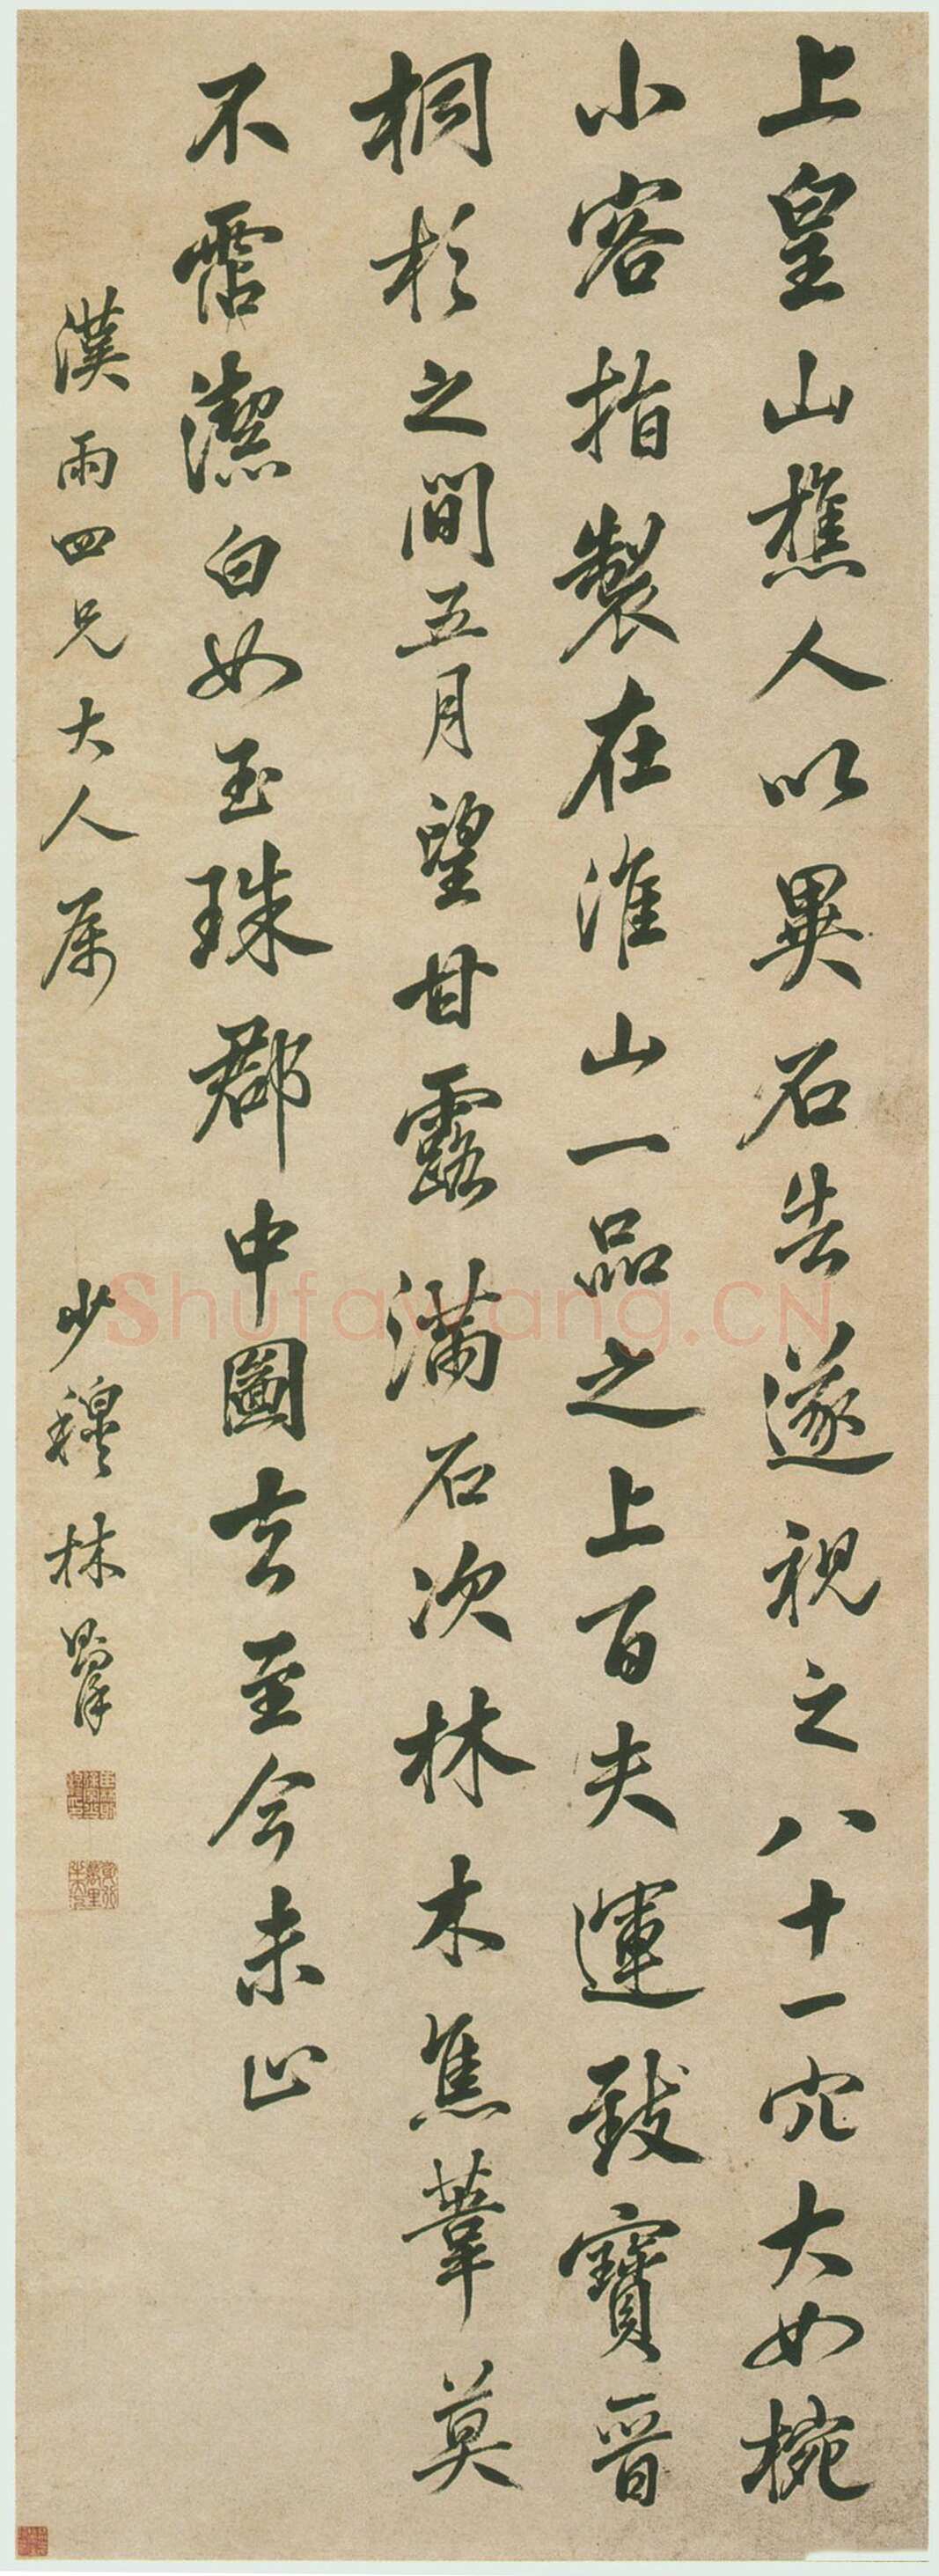 上皇山樵人以異石告遂視之八十一穴大如椀
小容指製在淮山一品之上百夫運致寶晉
桐杉之間五月望甘露滿石次林木蕉葦莫
不霑潔白如玉珠郡中圖去至今未止
漢雨四兄大人屬
少穆林則徐
Shufawang.CN